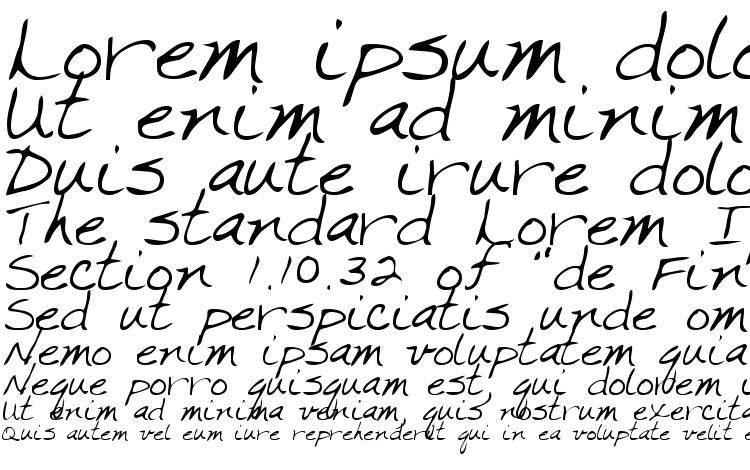 Lorem ipsum dolo
Ut enim ad minim
Duis aute irure dolo
The standard Lorem I
Section 1.10.32 of "de Fin
Sed ut perspiciatis unde om
Nemo enim ipsam voluptatem quia
Neque porro quisquam est, qui dolorem i
Ut enim ad minima veniam, quis nostrum exercita
Quis autem vel eum iure reprehenderit qui in ea voluptate velit e